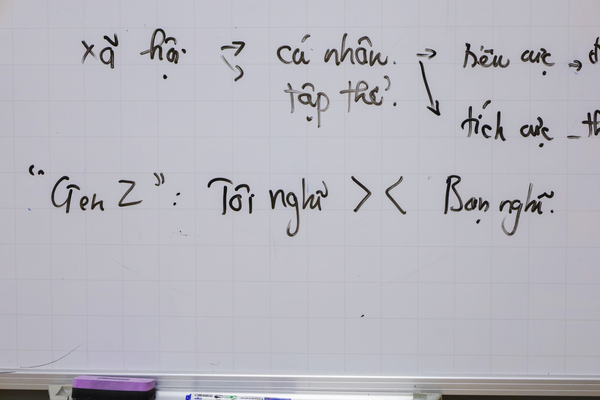 xã hội → cá nhân. → tiêu cực →
tập thể. tích cực –
"Gen Z": Tôi nghĩ >< Bạn nghĩ.